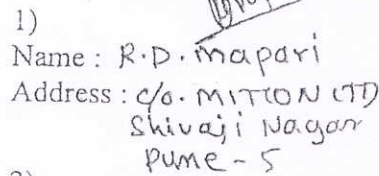 1)
Name : R.D. mapari
Address : c/o. MITCON LTD
Shivaji Nagar
Pune - 5